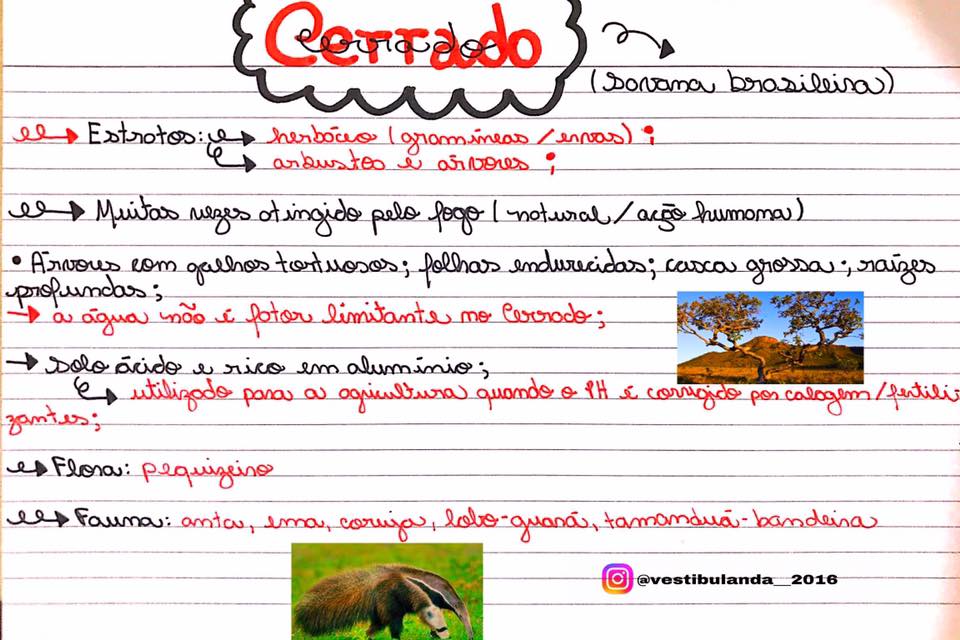 Cerrado
(savana brasileira)
Estratos: herbáceo (gramíneas / ervas);
arbustos e árvores;
Muitas vezes atingido pelo fogo (natural / ação humana)
• Árvores com galhos tortuosos; folhas endurecidas; casca grossa; raízes
profundas;
→ a água não é fator limitante no Cerrado;
→ solo ácido e rico em alumínio;
utilizado para a agricultura quando o PH é corrigido por calagem/fertili
zantes;
Flora: pequizeiro
Fauna: anta, ema, coruja, lobo-guará, tamanduá-bandeira
@vestibulanda__2016